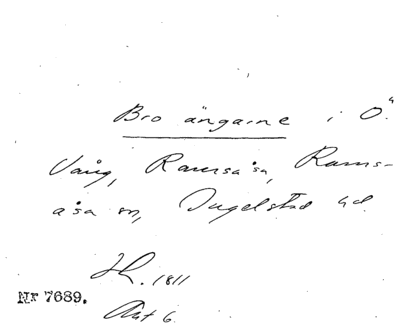 Bro ängarne i Ö.
Vång, Ramsåsa, Rams-
åsa sn, Ingelstad hd.
1811
Akt 6.
Nr 7689.